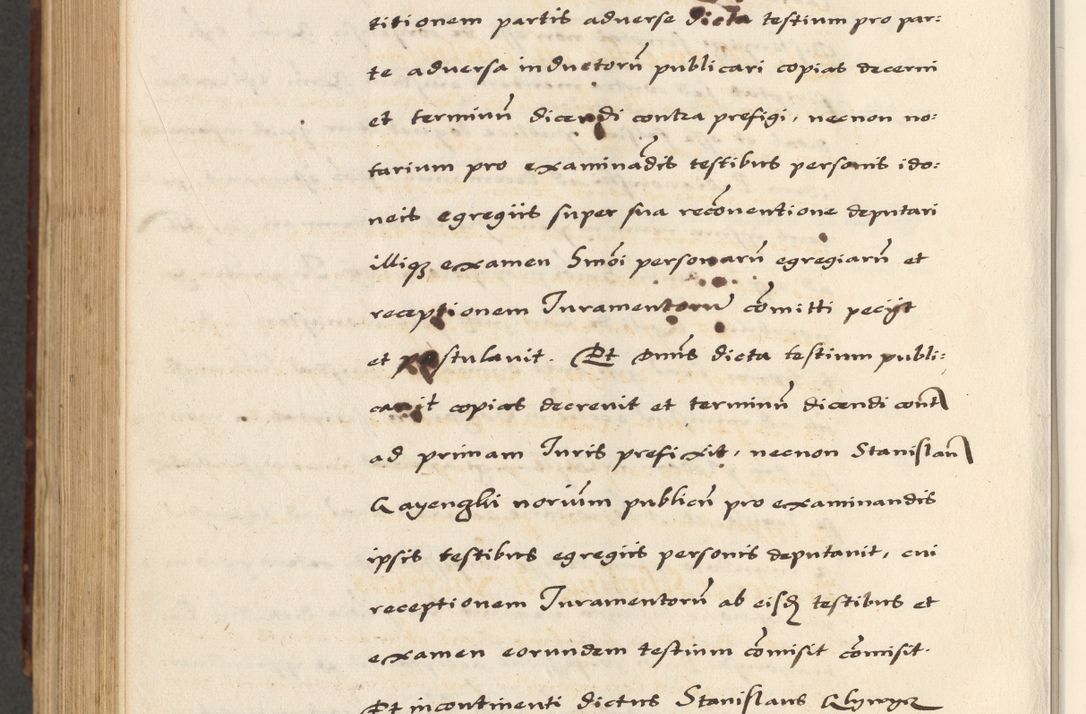 titionem partis adverse dicta testium pro par:
te adversa inductorū publicari copias decerni
et terminū dicendi contra prefigi, necnon no:
tarium pro examinādis testibus personis ido:
neis egregiis super sua recōventione deputari
illiqꝫ examen Smōi personarū egregiarū et
receptionem Iuramentorū cōmitti peciit
et postulavit. Et Dn̄us dicta testium publi:
cavit copias decrevit et terminū dicendi cont
ad primam Iuris prefixit, necnon Stanislaū
Gayenghi noriūm publicū pro examinandis
ipsis testibus egregiis personis deputavit, cui
receptionem Iuramentorū ab eisdꝫ testibus et
examen eorundem testium cōmisit cōmisit.
Et incontinenti dictus Stanislaus